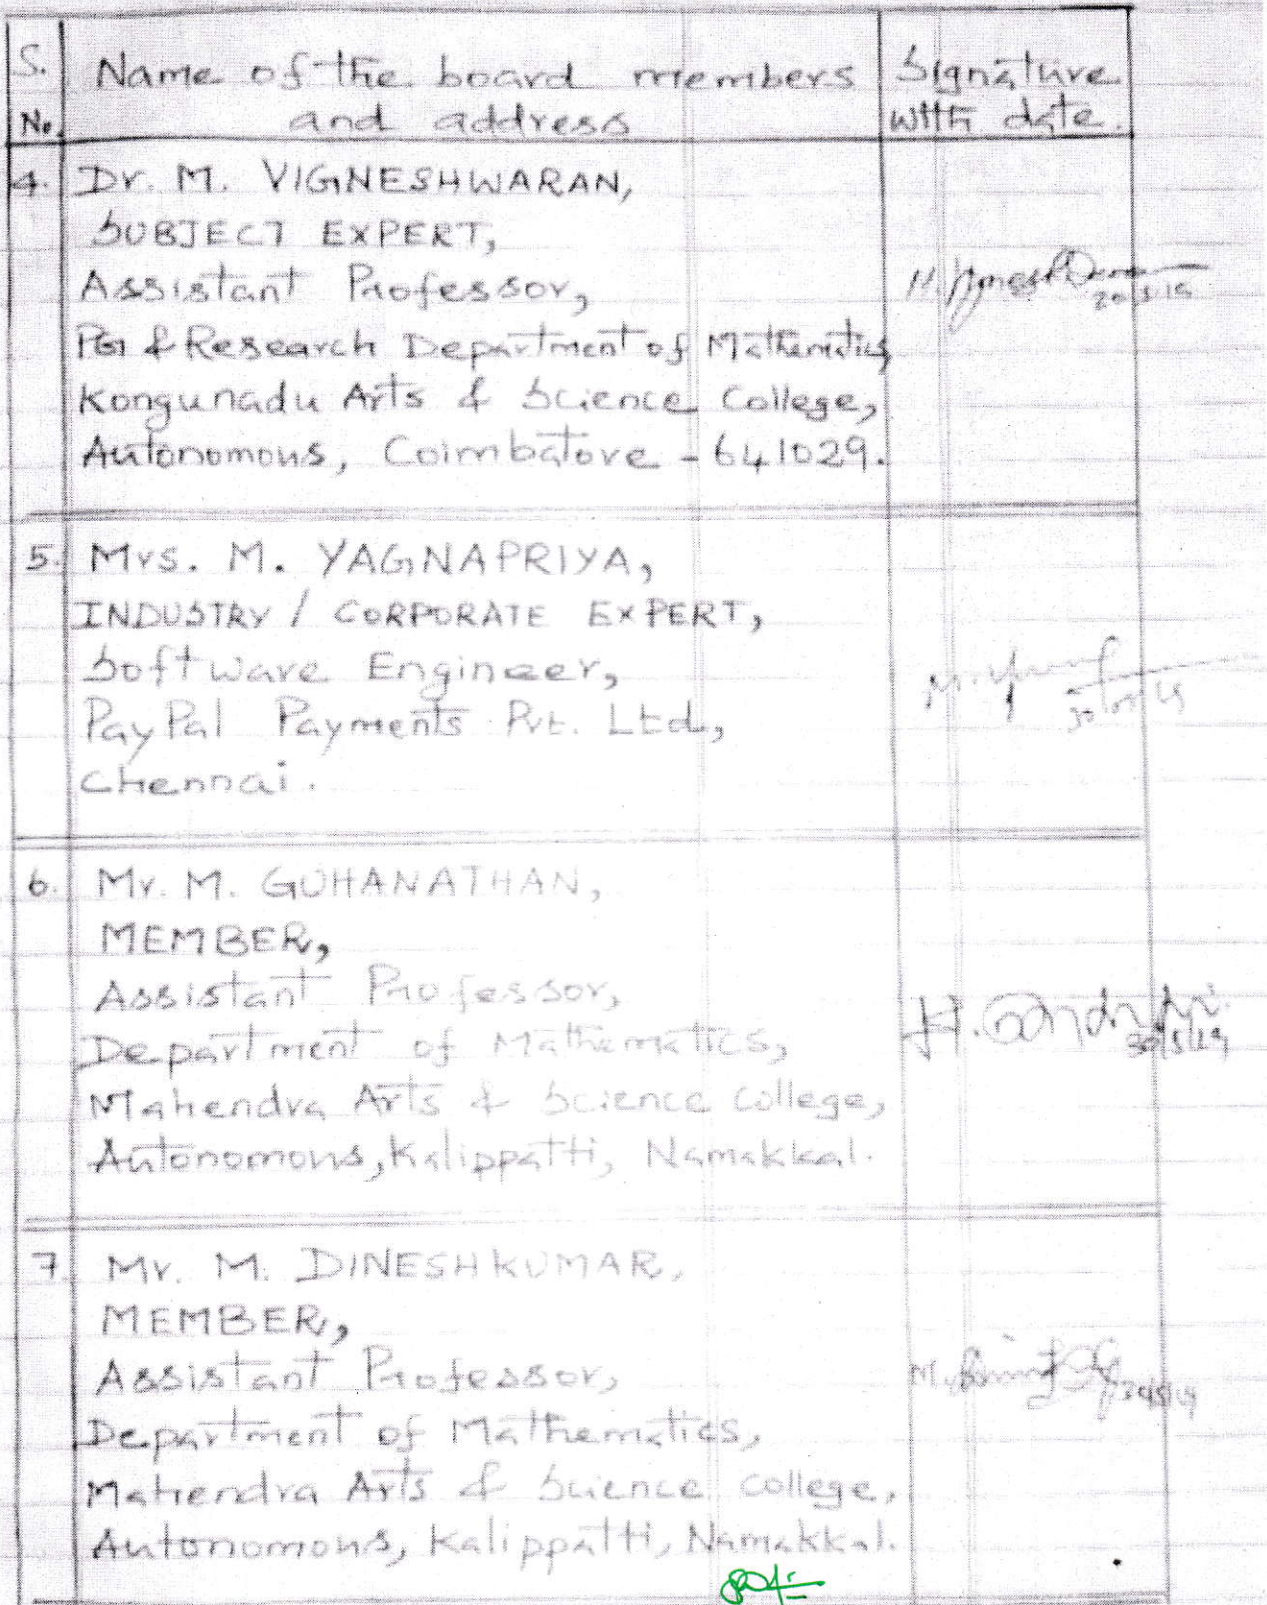 S. No. Name of the board members and address Signature with date.
4. Dr. M. VIGNESHWARAN,
SUBJECT EXPERT,
Assistant Professor,
PG & Research Department of Mathematics
Kongunadu Arts & Science College,
Autonomous, Coimbatore - 641029.
5. Mrs. M. YAGNAPRIYA,
INDUSTRY / CORPORATE EXPERT,
Software Engineer,
PayPal Payments Pvt. Ltd,
Chennai.
6. Mr. M. GUHANATHAN,
MEMBER,
Assistant Professor,
Department of Mathematics,
Mahendra Arts & Science College,
Autonomous, Kalippatti, Namakkal.
7. Mr. M. DINESHKUMAR,
MEMBER,
Assistant Professor,
Department of Mathematics,
Mahendra Arts & Science College,
Autonomous, Kalippatti, Namakkal.